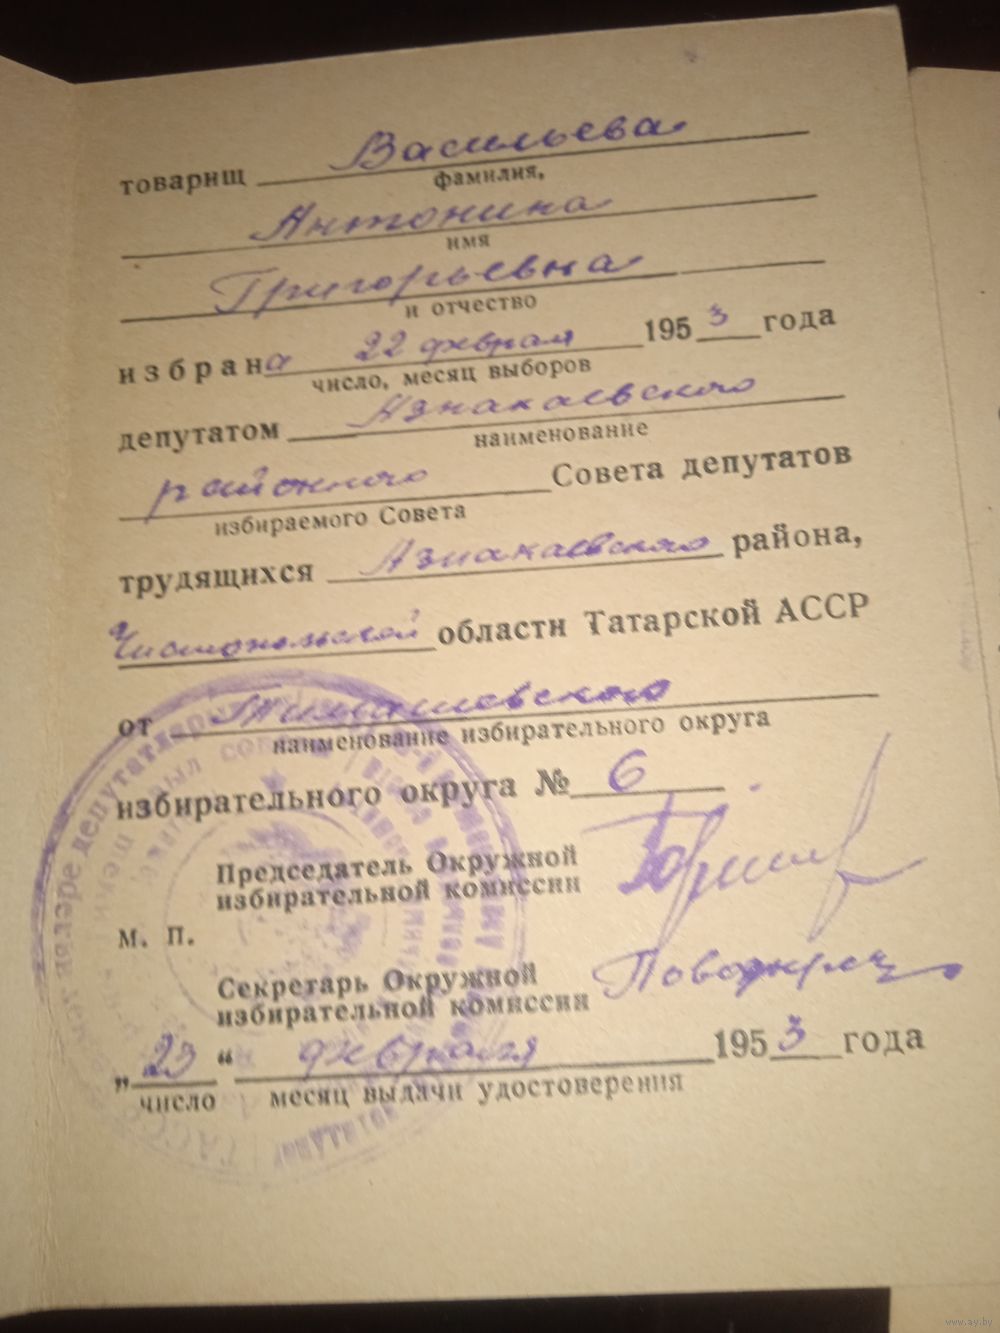 товарищ Васильева
фамилия,
Антонина
имя
Григорьевна
и отчество
избрана 22 февраля 1953 года
число, месяц выборов
депутатом Азнакаевского
наименование
районного Совета депутатов
избираемого Совета
трудящихся Азнакаевского района,
Чистопольской области Татарской АССР
от
наименование избирательного округа
избирательного округа № 6
Председатель Окружной
избирательной комиссии
М. П.
Секретарь Окружной
избирательной комиссии
„23“ февраля 1953 года
число месяц выдачи удостоверения
www.ay.by